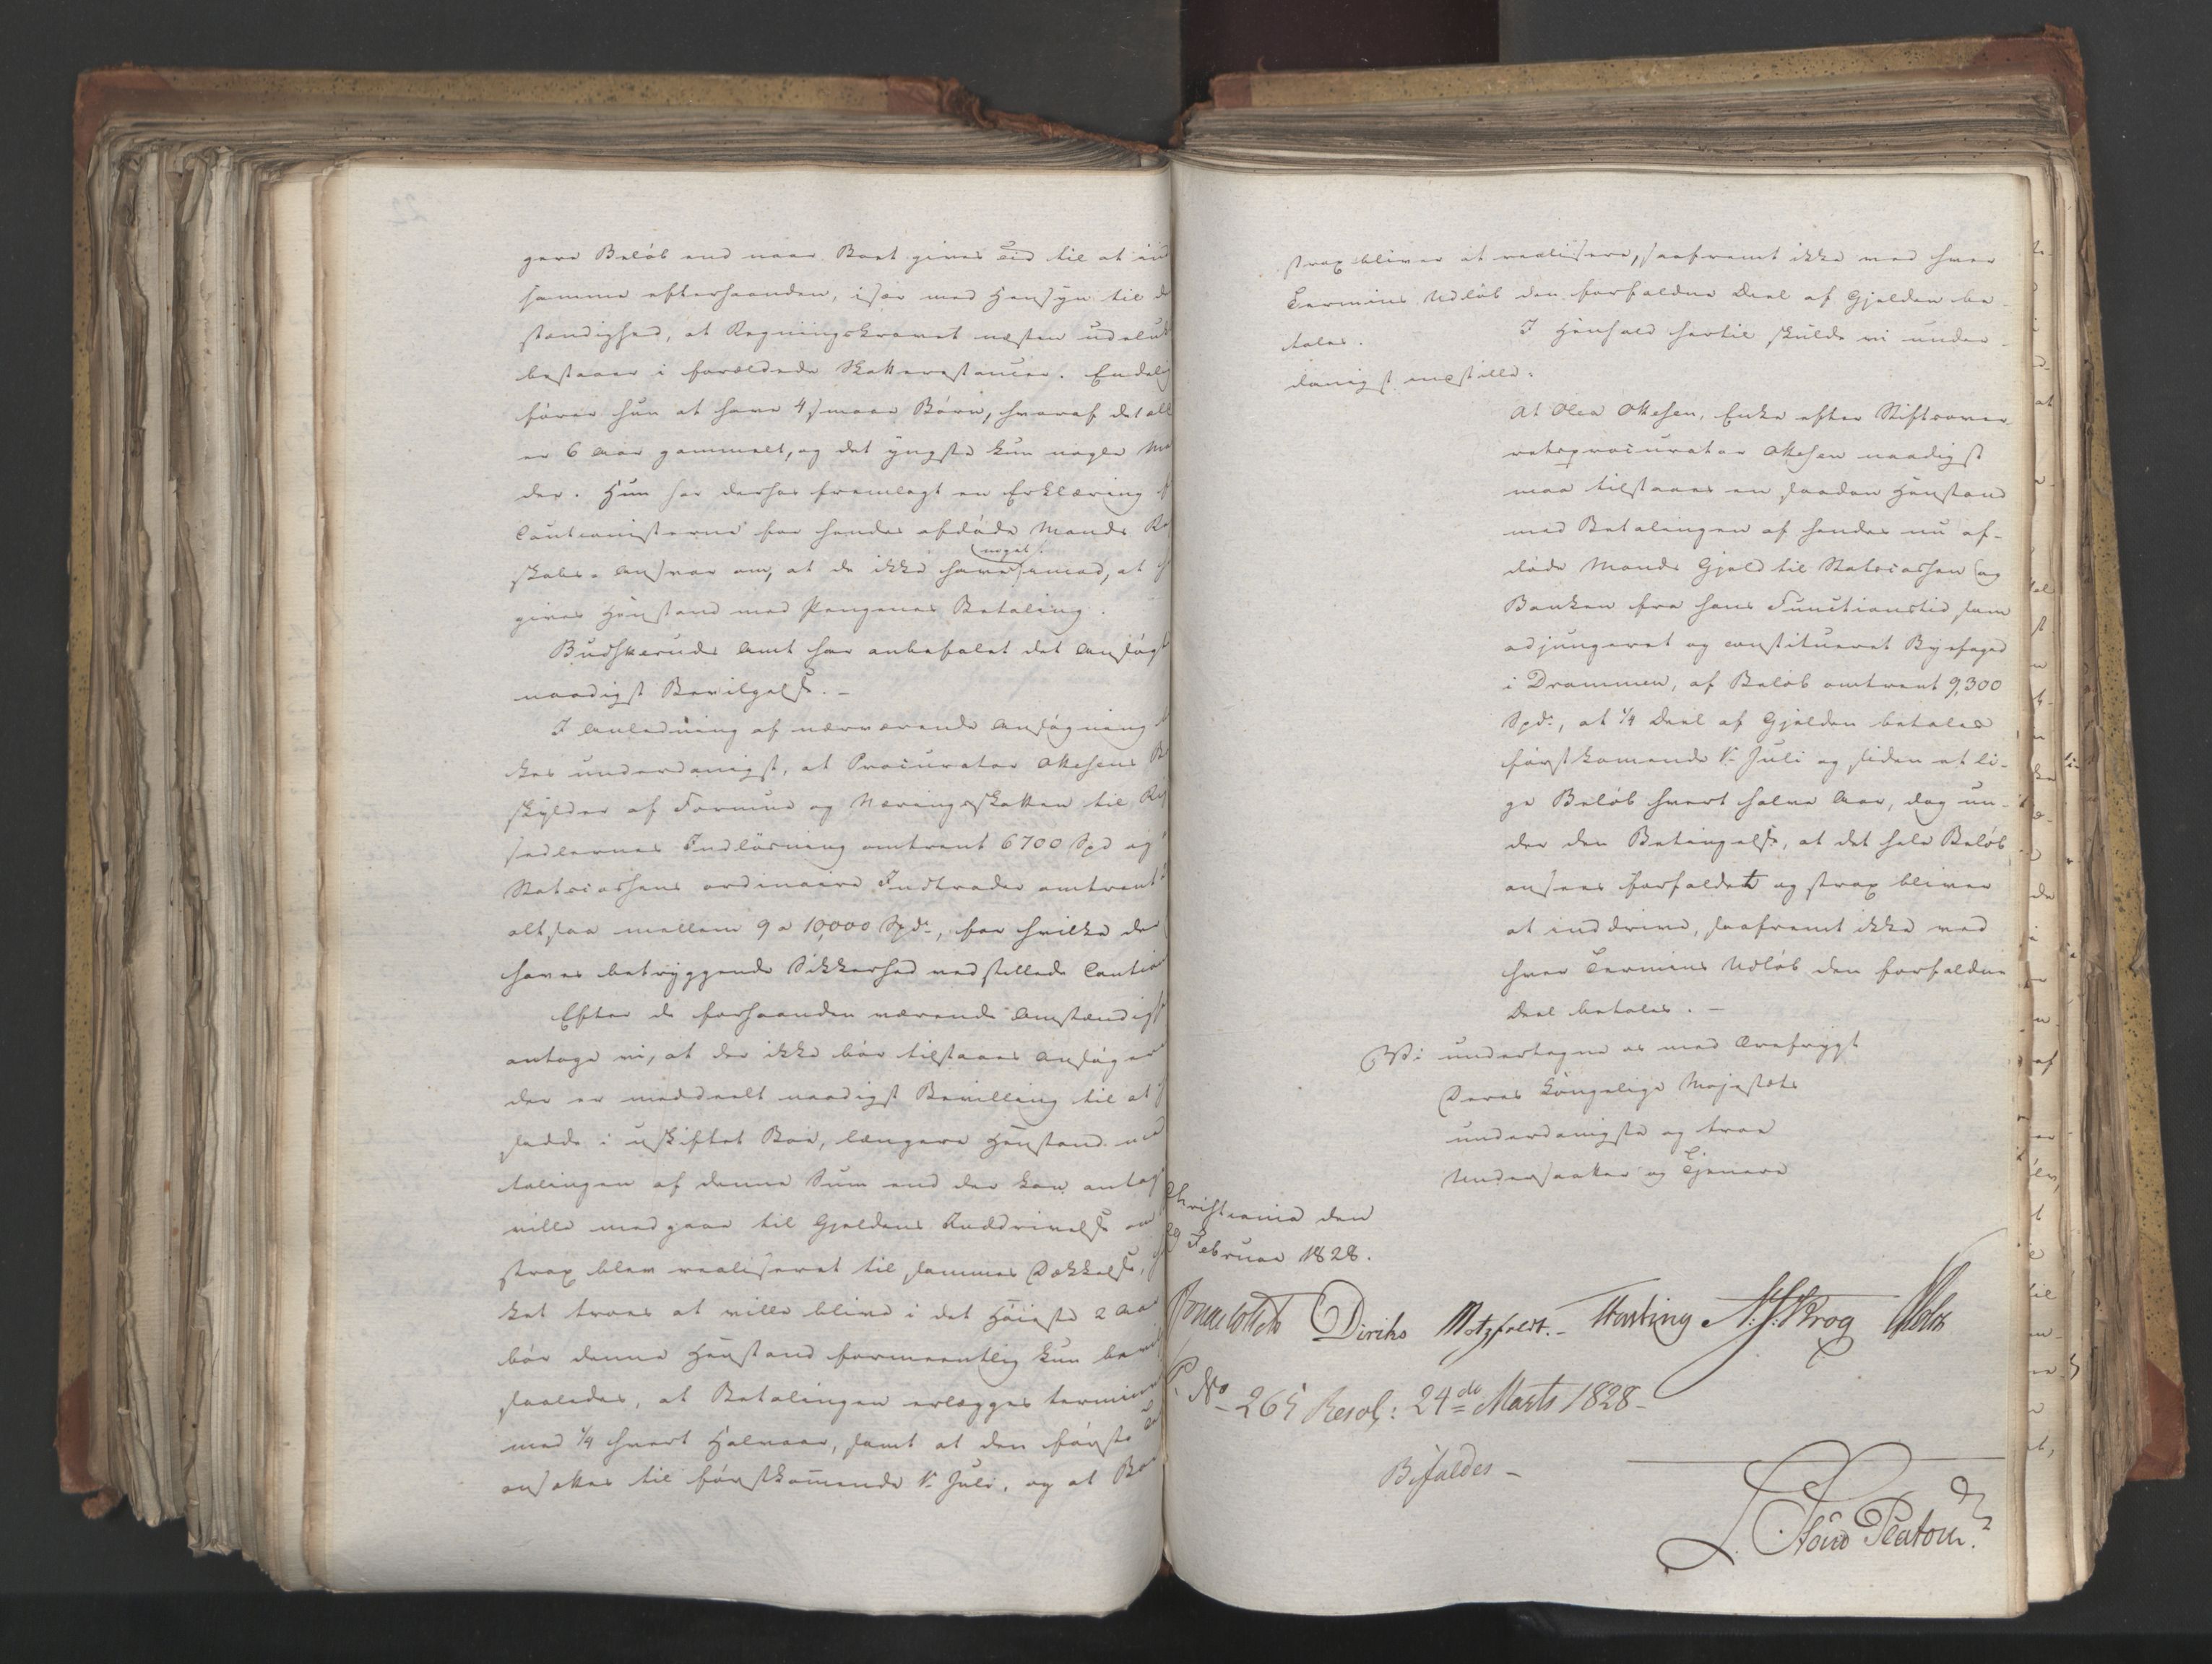 gere Beløb end naar Boet gives Tid til at ind
samme efterhaanden, især med Hensyn til
stændighed, at Regningskravet næsten udeluk
bestaaer i forældede Skatterestancer. Endelig
fører hun at have 4 smaae Børn, hvoraf det æld
er 6 Aar gammelt, og det yngste kun nogle Ma
der. Hun har derhos fremlagt en Erklæring
Cautionisterne for hendes afdøde Mands Re
skabs-Ansvar om, at de ikke have noget imod, at
gives Henstand med Pengenes Betaling.
Budskeruds Amt har anbefalet det Ansøgt
naadigst Bevilgelse. -
I Anledning af nærværende Ansøgning
kes underdanigst, at Procurator Ottesens
skylder af Formue og Næringsskatten til
sedlernes Indløsning omtrent 6700 Spd og
Statscassens ordinaire Indtræder omtrent
altsaa mellem 9 a 10,000 Spd., for hvilke der
haves betryggende Sikkerhed ved stillede Caution
Efter de forhaanden værende Omstændigh
antage vi, at der ikke bør tilstaaes Ansøger
der er meddeelt naadigst Bevilling til at
sidde i uskiftet Boe, længere Henstand med
talingen af denne Sum end der kan antag
ville medgaae til Gjeldens Inddrivelse om
strax blev realiseret til sammes Dækkelse,
ket troes at ville blive i det Høieste 2 Aar
bør denne Henstand formeentlig kun bevil
saaledes, at Betalingen erlægges termin
med 1/4 hvert Halvaar, samt at den første
ansættes til førstkomende 1. Juli, og at Bo
strax bliver at realisere, saafremt ikke ved hver
Termins Udløb den forfaldne Deel af Gjelden be-
tales. I Henhold hertil skulde vi under-
danigst indstille:
At Olea Ottesen, Enke efter Stiftsover
retsprocurator Ottesen naadigst
maa tilstaaes en saadan Henstand
med Betalingen af hendes nu af-
døde Mands Gjeld til Statscassen og
Banken fra hans Functionstid som
adjungeret og constitueret Byefoged
i Drammen, af Beløb omtrent 9,300
Spd:, at 1/4 Deel af Gjelden betales
førstkomende 1. Juli og siden et li-
ge Beløb hvert halve Aar, dog un-
der den Betingelse, at det hele Beløb
ansees forfaldet og strax bliver
at inddrive, saafremt ikke ved
hver Termins Udløb den forfaldne
Deel betales. -
Vi undertegne os med Ærefrygt
Deres Kongelige Majestæts
underdanigste og troe
Undersaatter og Tjenere
Christiania den
29 Februar 1828.
Diriks Motzfeldt. - Fasting N. J. Krog Holst
P. No 265 Resol: 24de Marts 1828-
Bifaldes -